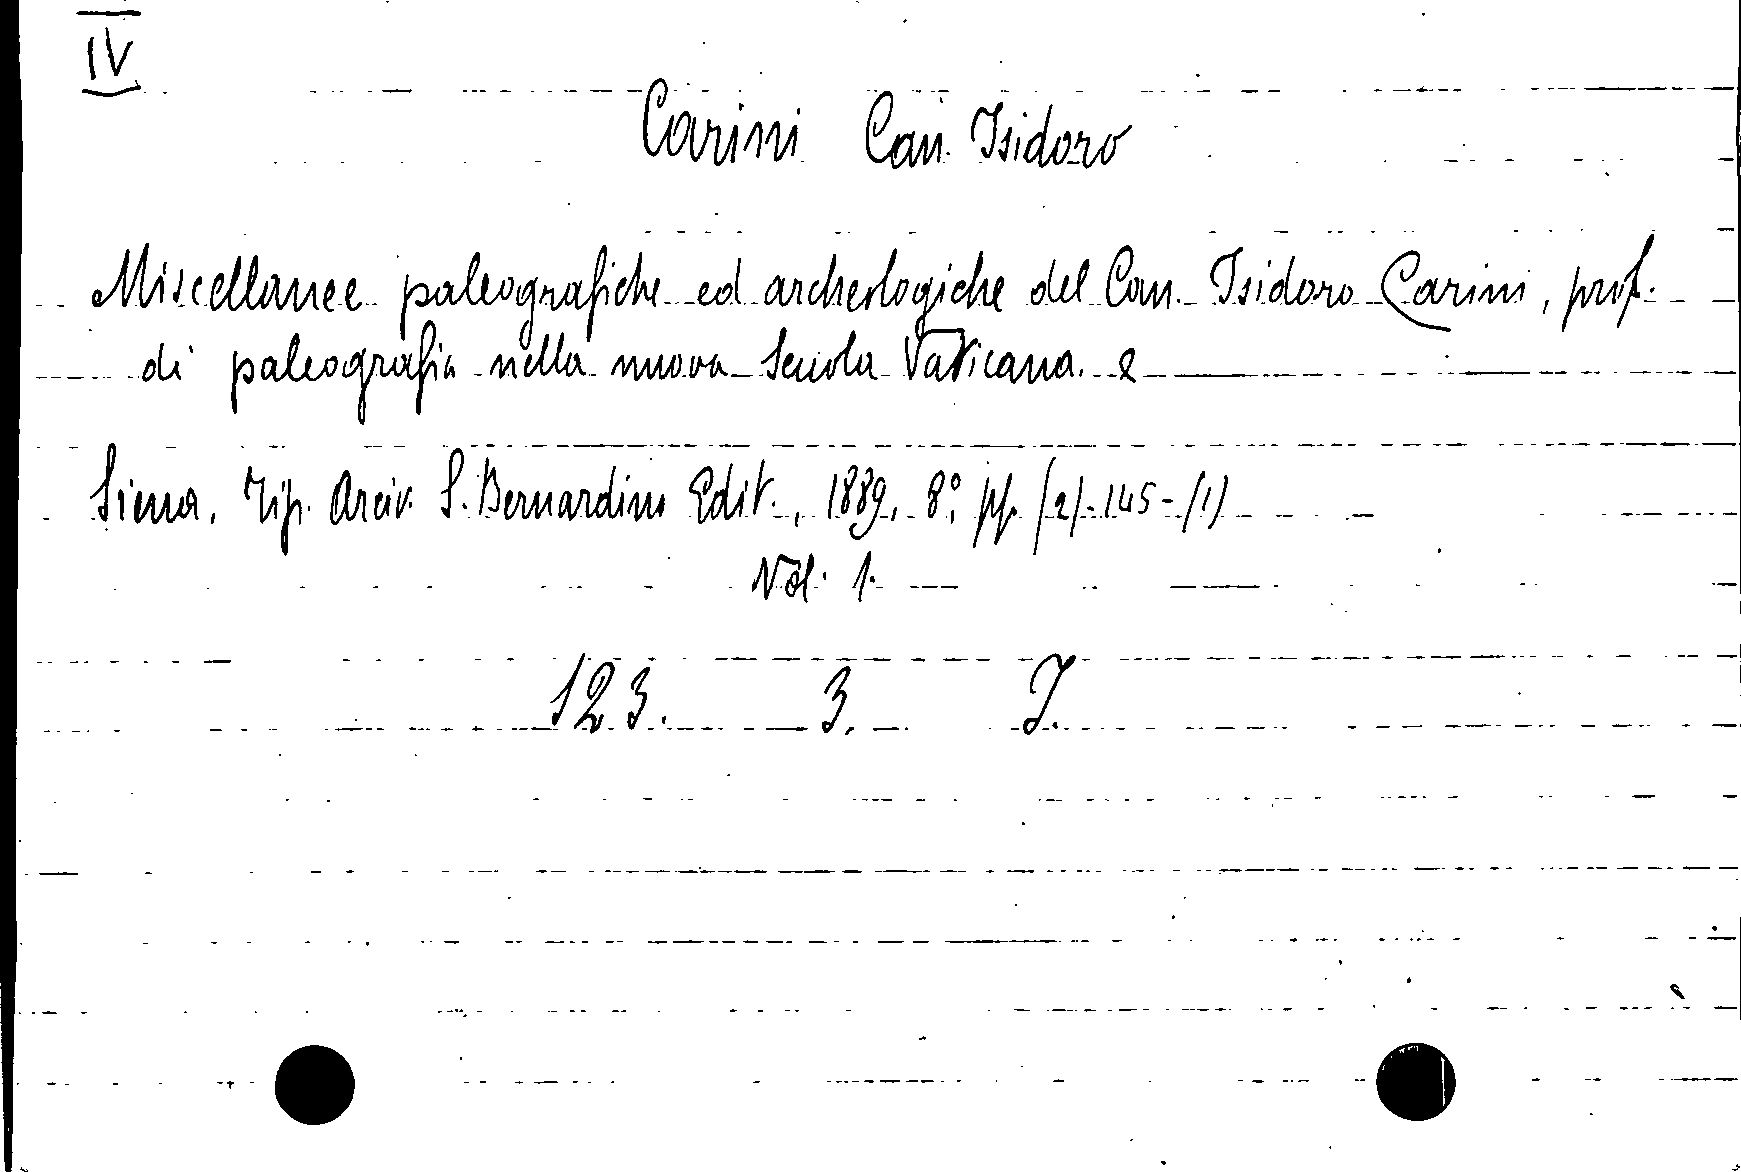 IV
Carini Can. Isidoro
Miscellanee paleografiche ed archeologiche del Can. Isidoro Carini, prof.
di paleografia nella nuova Scuola Vaticana.
Siena, Tip. Arciv. S. Bernardino Edit., 1889, 8°, pp. (2)-145-(1)
Vol. 1.
123. 3. I.